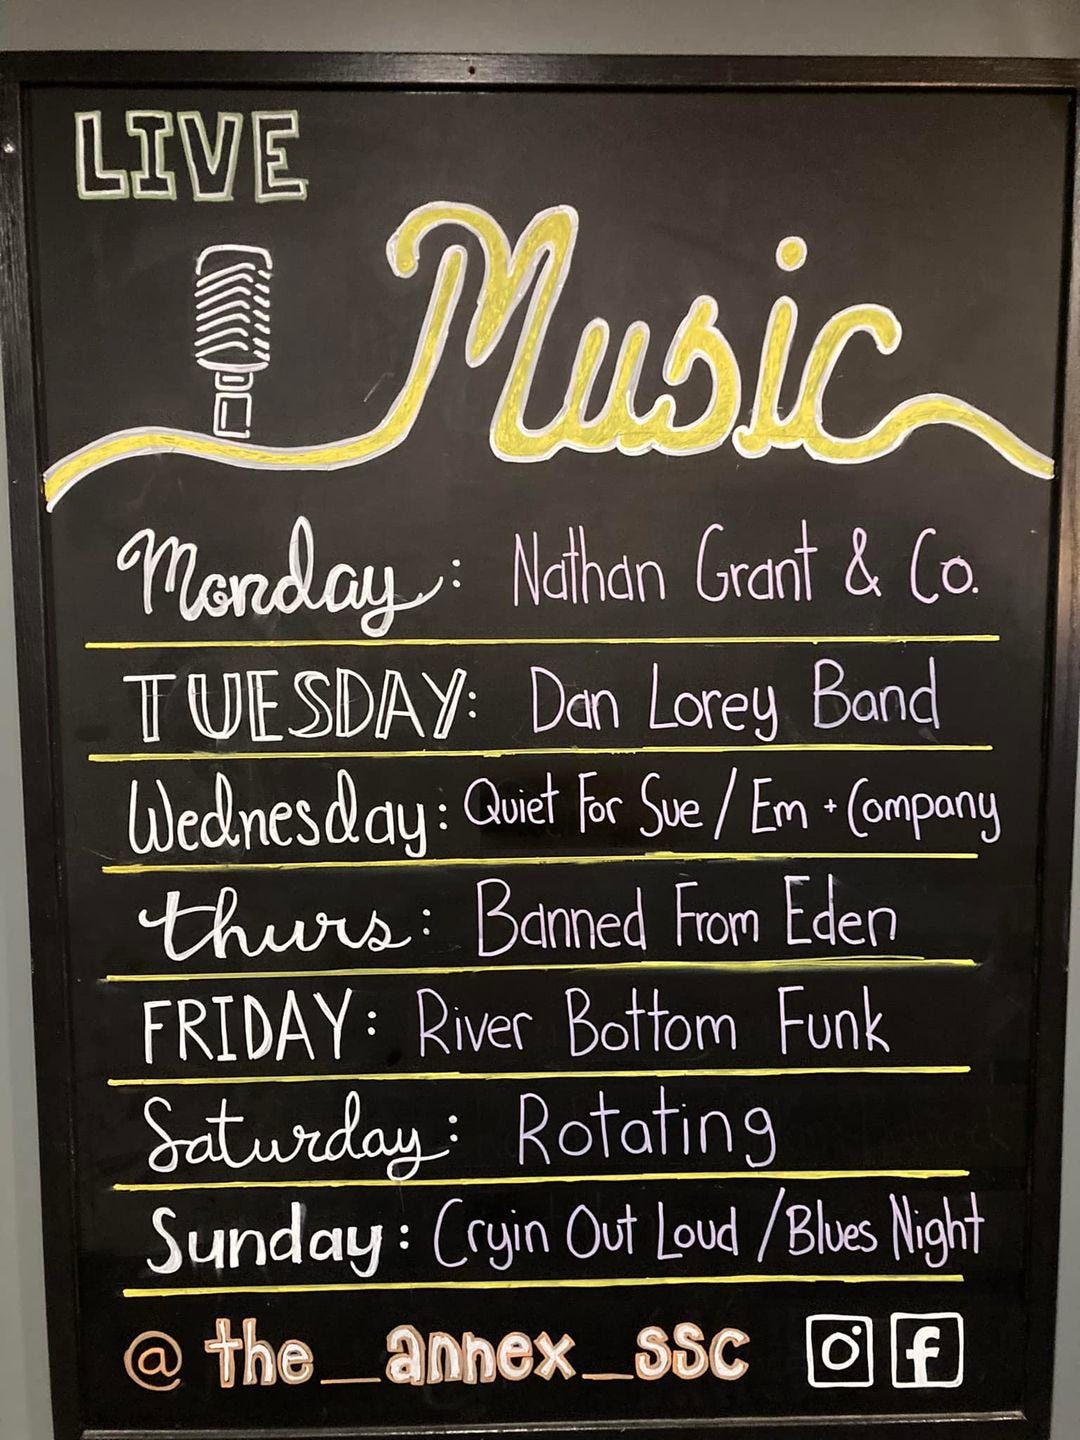 LIVE
Music
Monday: Nathan Grant & Co.
TUESDAY: Dan Lorey Band
Wednesday: Quiet For Sue / Em + Company
thurs: Banned From Eden
FRIDAY: River Bottom Funk
Saturday: Rotating
Sunday: Cryin Out Loud / Blues Night
@ the_annex_ssc